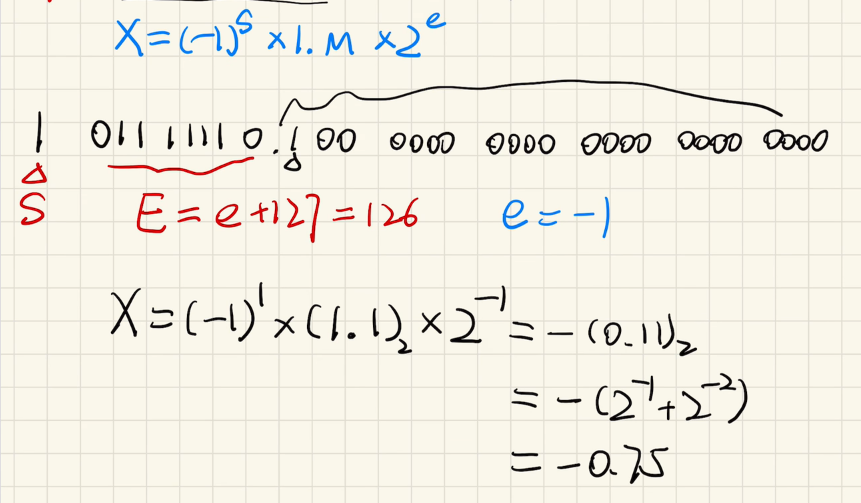 X=(-1)^S ×1.M ×2^e
1 011 1111 0.100 0000 0000 0000 0000 0000
S E=e+127=126 e=-1
X=(-1)^1×(1.1)_2×2^-1=-(0.11)_2
=-(2^-1+2^-2)
=-0.75